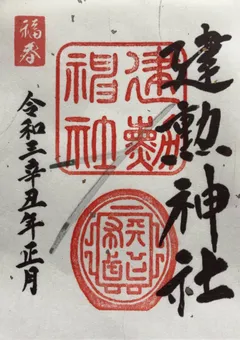 建勲神社
建勲
神社
福春
令和三辛丑年正月